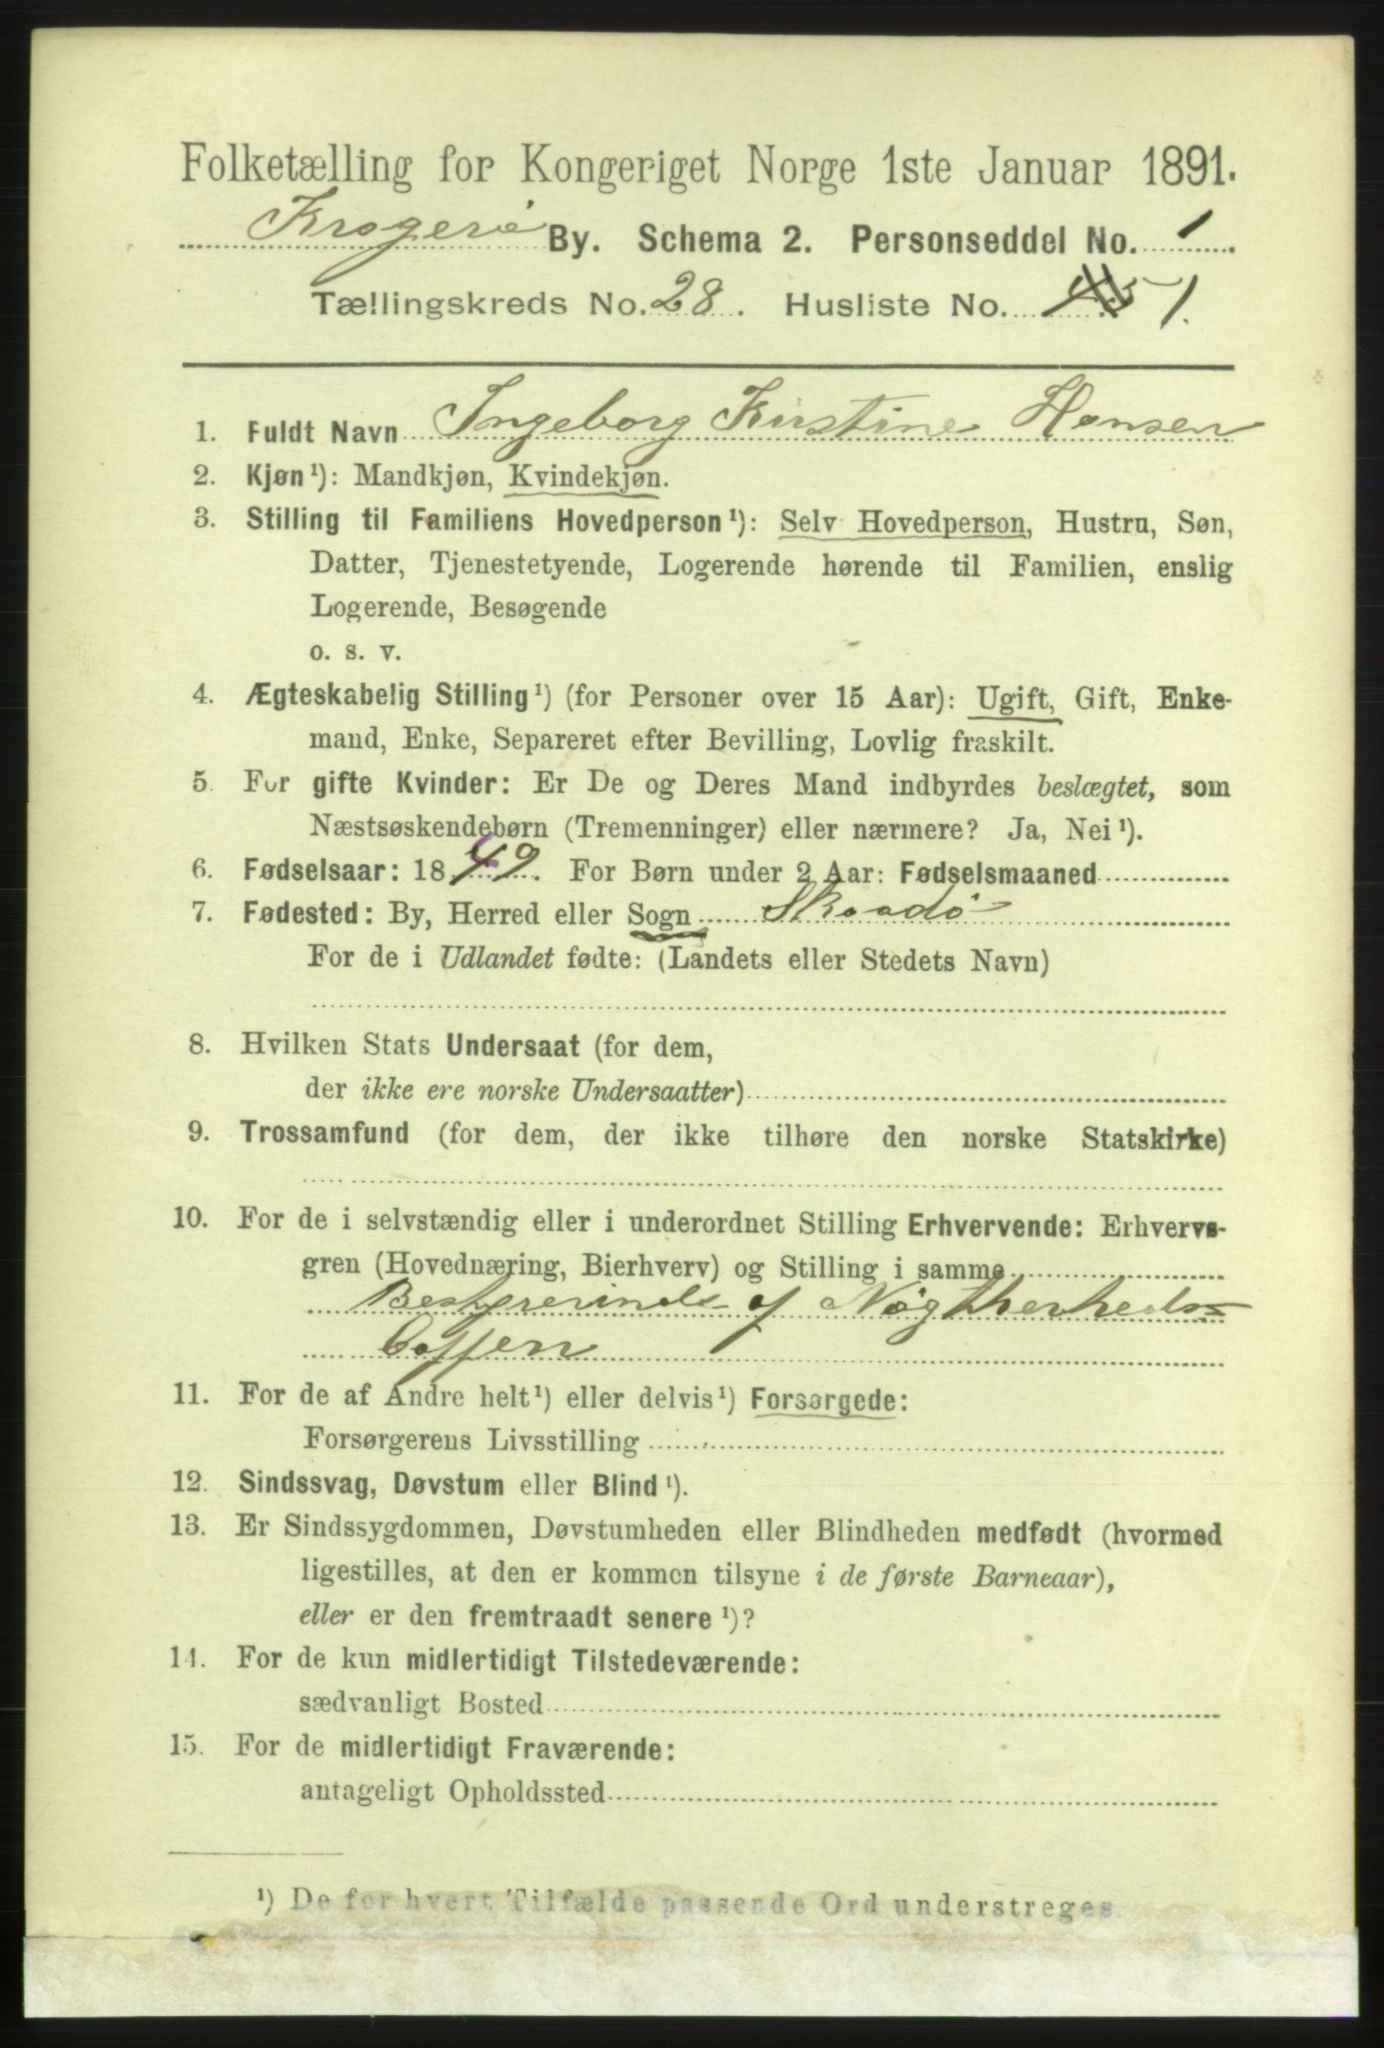 Folketælling for Kongeriget Norge 1ste Januar 1891.
Kragerø By. Schema 2. Personseddel No. 1
Tællingskreds No. 28. Husliste No. 1.
1. Fuldt Navn Ingeborg Kirstine Hansen
2. Kjøn¹): Mandkjøn, Kvindekjøn.
3. Stilling til Familiens Hovedperson¹): Selv Hovedperson, Hustru, Søn,
Datter, Tjenestetyende, Logerende hørende til Familien, enslig
Logerende, Besøgende
o. s. v.
4. Ægteskabelig Stilling¹) (for Personer over 15 Aar): Ugift, Gift, Enke-
mand, Enke, Separeret efter Bevilling, Lovlig fraskilt.
5. For gifte Kvinder: Er De og Deres Mand indbyrdes beslægtet, som
Næstsøskendebørn (Tremenninger) eller nærmere? Ja, Nei¹).
6. Fødselsaar: 1849. For Børn under 2 Aar: Fødselsmaaned
7. Fødested: By, Herred eller Sogn Skaadø
For de i Udlandet fødte: (Landets eller Stedets Navn)
8. Hvilken Stats Undersaat (for dem,
der ikke ere norske Undersaatter)
9. Trossamfund (for dem, der ikke tilhøre den norske Statskirke)
10. For de i selvstændig eller i underordnet Stilling Erhvervende: Erhvervs-
gren (Hovednæring, Bierhverv) og Stilling i samme
Bestyrerinde af
11. For de af Andre helt¹) eller delvis¹) Forsørgede:
Forsørgerens Livsstilling
12. Sindssvag, Døvstum eller Blind¹).
13. Er Sindssygdommen, Døvstumheden eller Blindheden medfødt (hvormed
ligestilles, at den er kommen tilsyne i de første Barneaar),
eller er den fremtraadt senere¹)?
14. For de kun midlertidigt Tilstedeværende:
sædvanligt Bosted
15. For de midlertidigt Fraværende:
antageligt Opholdssted
¹) De for hvert Tilfælde passende Ord understreges.